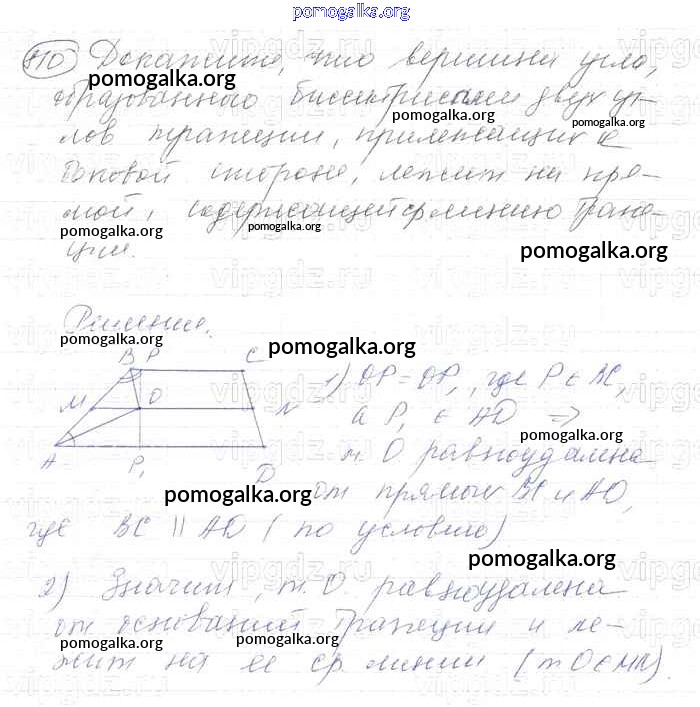 pomogalka.org
410 Докажите, что вершина угла,
pomogalka.org
образованного биссектрисами двух уг-
pomogalka.org
pomogalka.org
лов трапеции, прилежащих к
боковой стороне, лежит на пря-
мой, содержащей ср. линию трапе-
pomogalka.org
pomogalka.org
ции.
pomogalka.org
Решение.
pomogalka.org
B P C
1) OP = OP₁, где P ∈ BC,
M O N
а P₁ ∈ AD ⇒
pomogalka.org
A P₁ D
т. O равноудалена
pomogalka.org
от прямых BC и AD,
где BC || AD (по условию)
pomogalka.org
2) Значит, т. O равноудалена
от оснований трапеции и ле-
pomogalka.org
pomogalka.org
жит на ее ср. линии (т O ∈ MN).